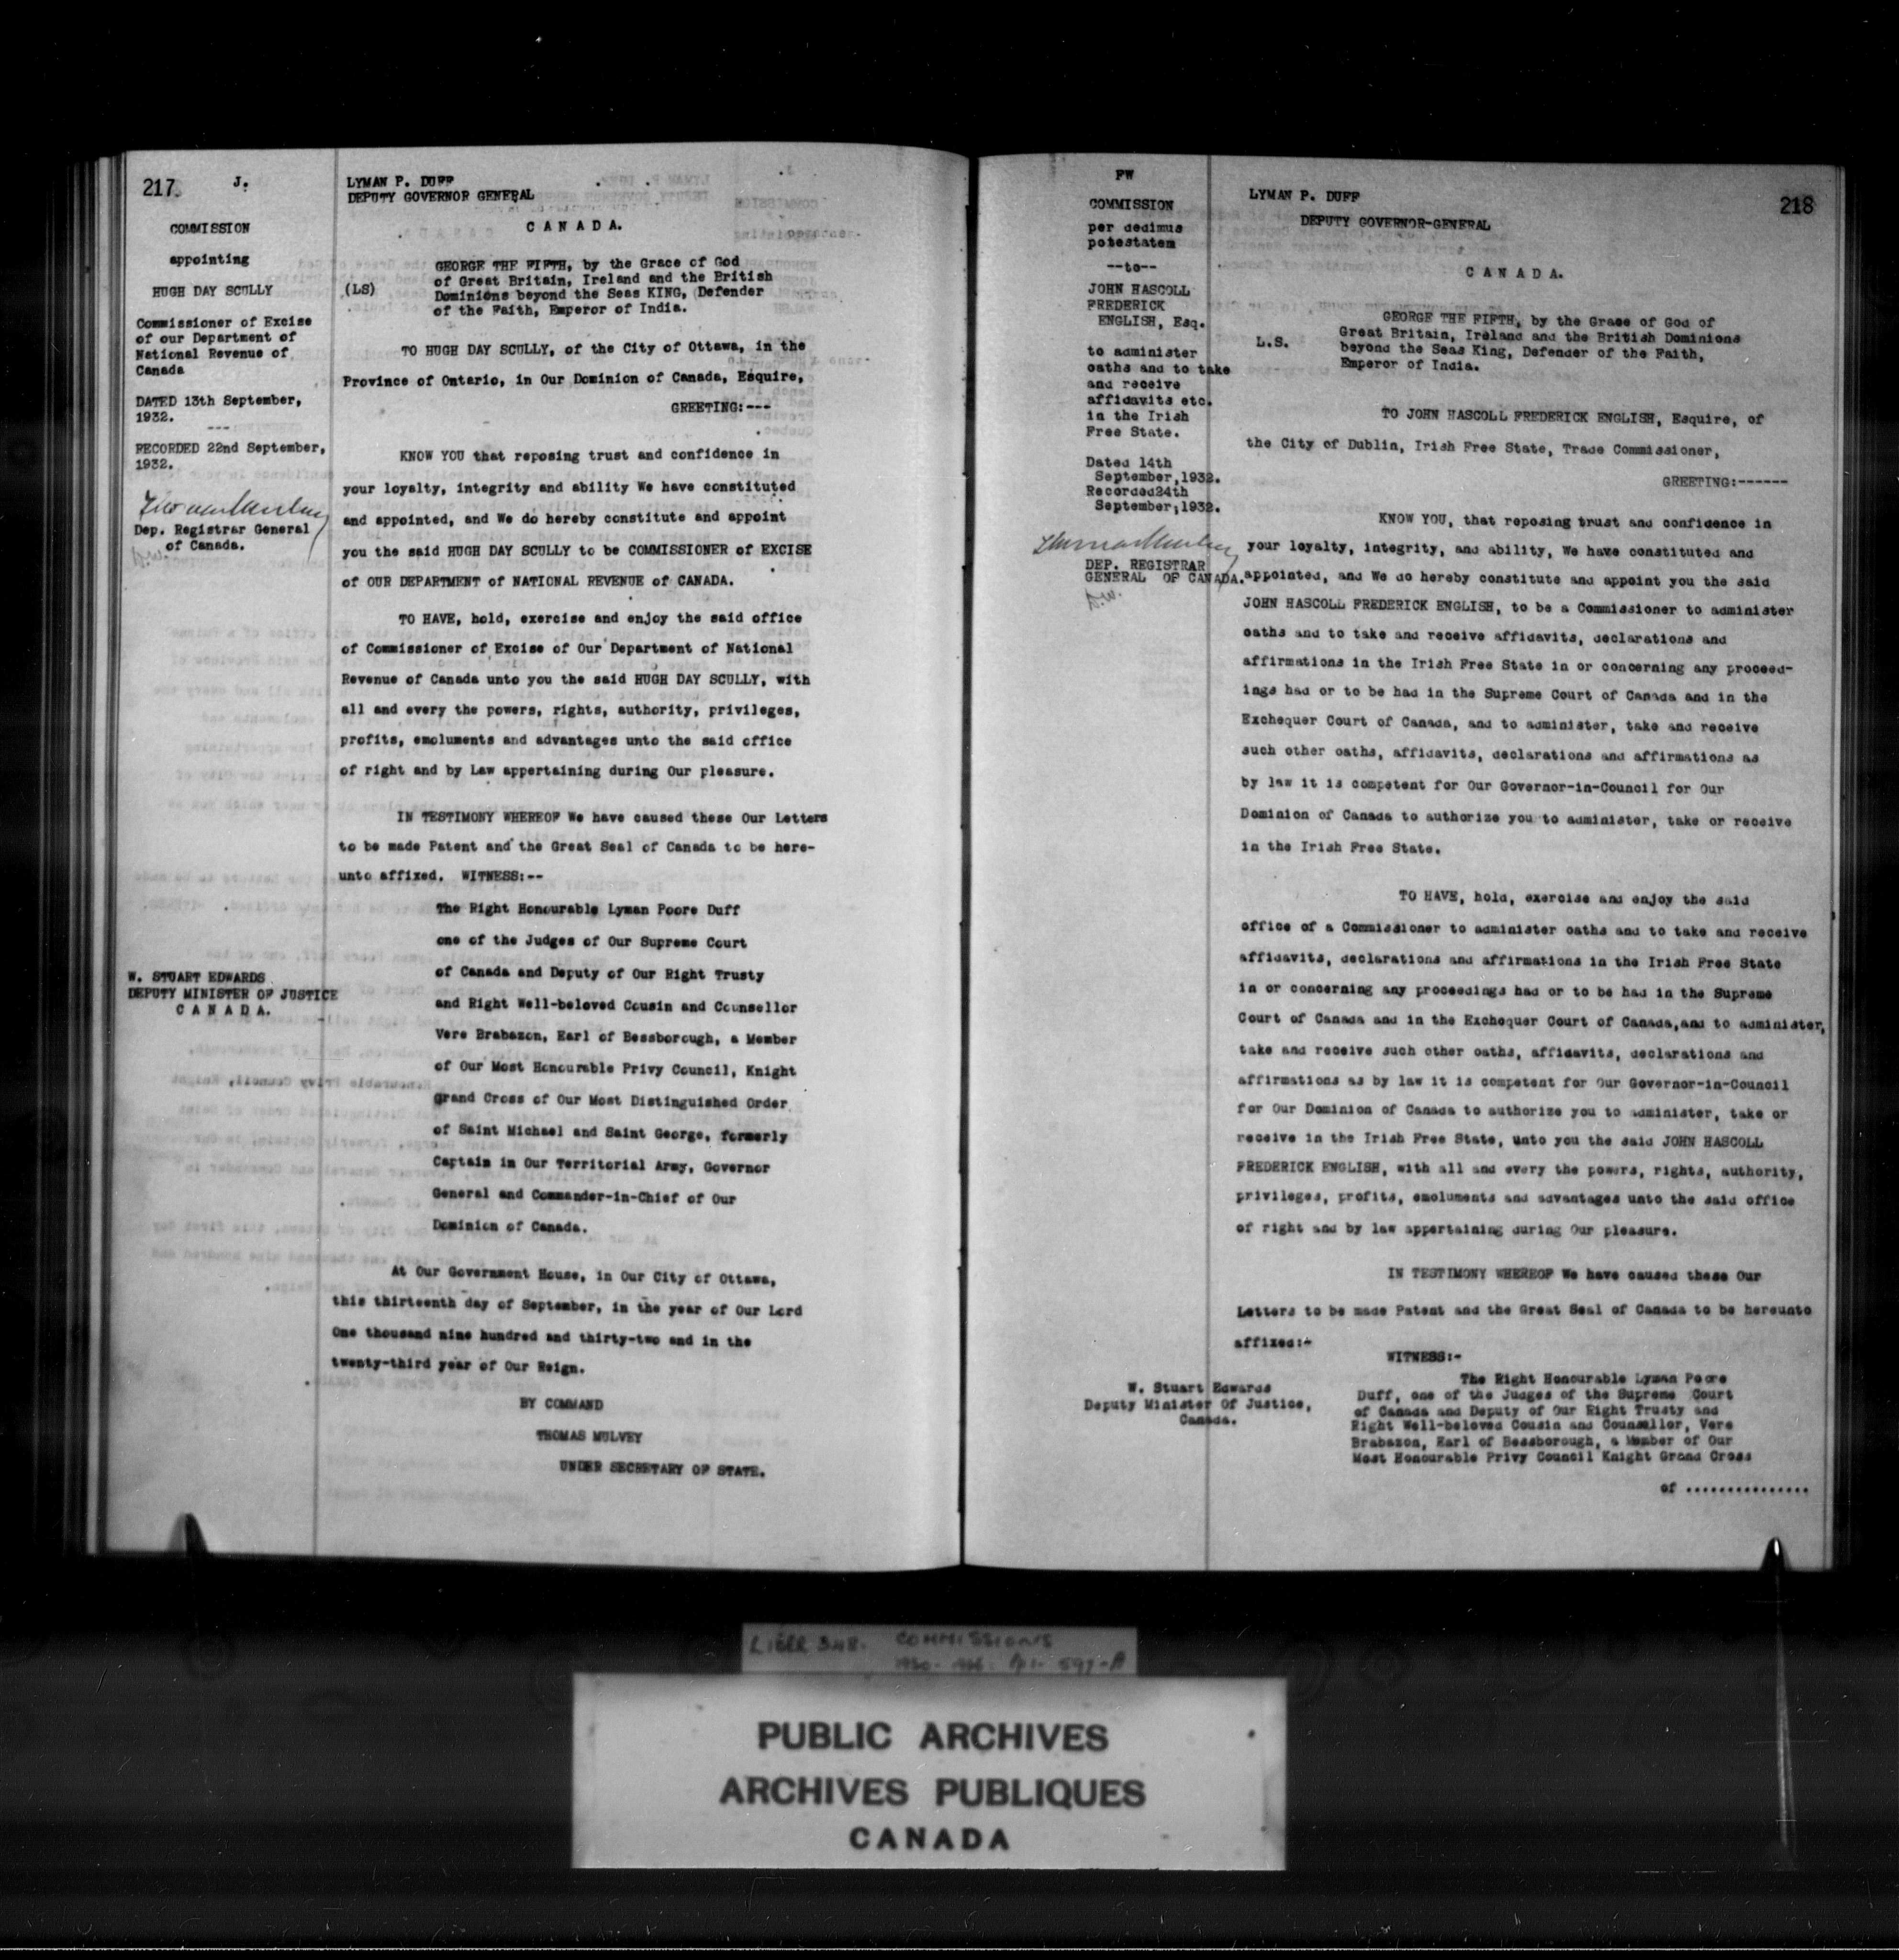 217. J.
COMMISSION
appointing
HUGH DAY SCULLY
Commissioner of Excise
of our Department of
National Revenue of
Canada
DATED 13th September,
1932.
---
RECORDED 22nd September,
1932.
Dep. Registrar General
of Canada.
W. STUART EDWARDS
DEPUTY MINISTER OF JUSTICE
C A N A D A.
LYMAN P. DUFF
DEPUTY GOVERNOR GENERAL
C A N A D A.
(LS)
GEORGE THE FIFTH, by the Grace of God
of Great Britain, Ireland and the British
Dominions beyond the Seas KING, Defender
of the Faith, Emperor of India.
TO HUGH DAY SCULLY, of the City of Ottawa, in the
Province of Ontario, in Our Dominion of Canada, Esquire,
GREETING:---
KNOW YOU that reposing trust and confidence in
your loyalty, integrity and ability We have constituted
and appointed, and We do hereby constitute and appoint
you the said HUGH DAY SCULLY to be COMMISSIONER of EXCISE
of OUR DEPARTMENT of NATIONAL REVENUE of CANADA.
TO HAVE, hold, exercise and enjoy the said office
of Commissioner of Excise of Our Department of National
Revenue of Canada unto you the said HUGH DAY SCULLY, with
all and every the powers, rights, authority, privileges,
profits, emoluments and advantages unto the said office
of right and by Law appertaining during Our pleasure.
IN TESTIMONY WHEREOF We have caused these Our Letters
to be made Patent and the Great Seal of Canada to be here-
unto affixed. WITNESS:--
The Right Honourable Lyman Poore Duff
one of the Judges of Our Supreme Court
of Canada and Deputy of Our Right Trusty
and Right Well-beloved Cousin and Counsellor
Vere Brabazon, Earl of Bessborough, a Member
of Our Most Honourable Privy Council, Knight
grand Cross of Our Most Distinguished Order
of Saint Michael and Saint George, formerly
Captain in Our Territorial Army, Governor
General and Commander-in-Chief of Our
Dominion of Canada.
At Our Government House, in Our City of Ottawa,
this thirteenth day of September, in the year of Our Lord
One thousand nine hundred and thirty-two and in the
twenty-third year of Our Reign.
BY COMMAND
THOMAS MULVEY
UNDER SECRETARY OF STATE.
FW
COMMISSION
per dedimus
potestatem
--to--
JOHN HASCOLL
FREDERICK
ENGLISH, Esq.
to administer
oaths and to take
and receive
affidavits etc.
in the Irish
Free State.
Dated 14th
September,1932.
Recorded24th
September,1932.
DEP. REGISTRAR
GENERAL OF CANADA.
W. Stuart Edwards
Deputy Minister Of Justice,
Canada.
218
LYMAN P. DUFF
DEPUTY GOVERNOR-GENERAL
C A N A D A.
L.S.
GEORGE THE FIFTH, by the Grace of God of
Great Britain, Ireland and the British Dominions
beyond the Seas King, Defender of the Faith,
Emperor of India.
TO JOHN HASCOLL FREDERICK ENGLISH, Esquire, of
the City of Dublin, Irish Free State, Trade Commissioner,
GREETING:------
KNOW YOU, that reposing trust and confidence in
your loyalty, integrity, and ability, We have constituted and
appointed, and We do hereby constitute and appoint you the said
JOHN HASCOLL FREDERICK ENGLISH, to be a Commissioner to administer
oaths and to take and receive affidavits, declarations and
affirmations in the Irish Free State in or concerning any proceed-
ings had or to be had in the Supreme Court of Canada and in the
Exchequer Court of Canada, and to administer, take and receive
such other oaths, affidavits, declarations and affirmations as
by law it is competent for Our Governor-in-Council for Our
Dominion of Canada to authorize you to administer, take or receive
in the Irish Free State.
TO HAVE, hold, exercise and enjoy the said
office of a Commissioner to administer oaths and to take and receive
affidavits, declarations and affirmations in the Irish Free State
in or concerning any proceedings had or to be had in the Supreme
Court of Canada and in the Exchequer Court of Canada,and to administer,
take and receive such other oaths, affidavits, declarations and
affirmations as by law it is competent for Our Governor-in-Council
for Our Dominion of Canada to authorize you to administer, take or
receive in the Irish Free State, unto you the said JOHN HASCOLL
FREDERICK ENGLISH, with all and every the powers, rights, authority,
privileges, profits, emoluments and advantages unto the said office
of right and by law appertaining during Our pleasure.
IN TESTIMONY WHEREOF We have caused these Our
Letters to be made Patent and the Great Seal of Canada to be hereunto
affixed:-
WITNESS:-
The Right Honourable Lyman Poore
Duff, one of the Judges of the Supreme Court
of Canada and Deputy of Our Right Trusty and
Right Well-beloved Cousin and Counsellor, Vere
Brabazon, Earl of Bessborough, a Member of Our
Most Honourable Privy Council Knight Grand Cross
of ...............
LIBER 348. COMMISSIONS
PUBLIC ARCHIVES
ARCHIVES PUBLIQUES
CANADA